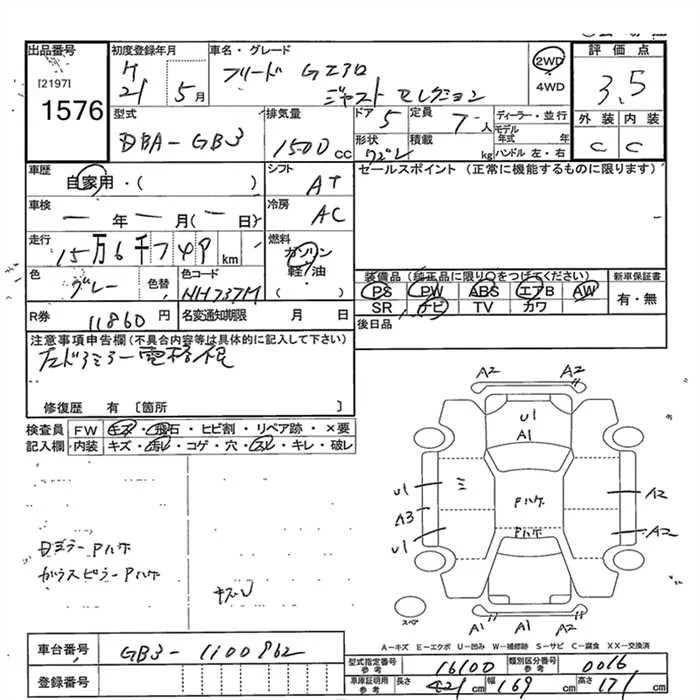 出品番号
[2197]
1576
初度登録年月
H
21 5月
車名・グレード
フリード G エアロ
ジャストセレクション
2WD
4WD
評価点
3.5
外装 内装
C C
型式
DBA-GB3
排気量
1500cc
ドア
5
形状
ワゴン
定員
7人
積載
kg
ディーラー・並行
モデル年式 年
ハンドル 左・右
車歴
自家用・( )
シフト
AT
セールスポイント (正常に機能するものに限ります)
車検
ー年ー月(ー日)
冷房
AC
走行
15万6千749km
燃料
ガソリン
軽油
( )
色
グレー
色替
色コード
NH737M
装備品(純正品に限り〇をつけてください)
PS PW ABS エアB AW
SR ナビ TV カワ
新車保証書
有・無
R券
11860円
名変通知期限
月 日
後日品
注意事項申告欄(不具合内容等は具体的に記入して下さい)
左ドアミラー電格
修復歴 有 [箇所 ]
検査員
記入欄
FW キズ・飛石・ヒビ割・リペア跡・×要
内装 キズ・汚レ・コゲ・穴・スレ・キレ・破レ
A2 A2
U1
A1
U1 ミ A2
Pハゲ
A3
Pハゲ
U1 A2
スペア
A1 A1 A2
Dミラー Pハゲ
ガラスピラー Pハゲ
キズ
A-キズ E-エクボ U-凹み W-補修跡 S-サビ C-腐食 XX-交換済
車台番号
GB3-1100862
登録番号
型式指定番号
参考
16100
類別区分番号
参考
0016
車庫証明用
参考
長さ 421cm 幅 169cm 高さ 171cm